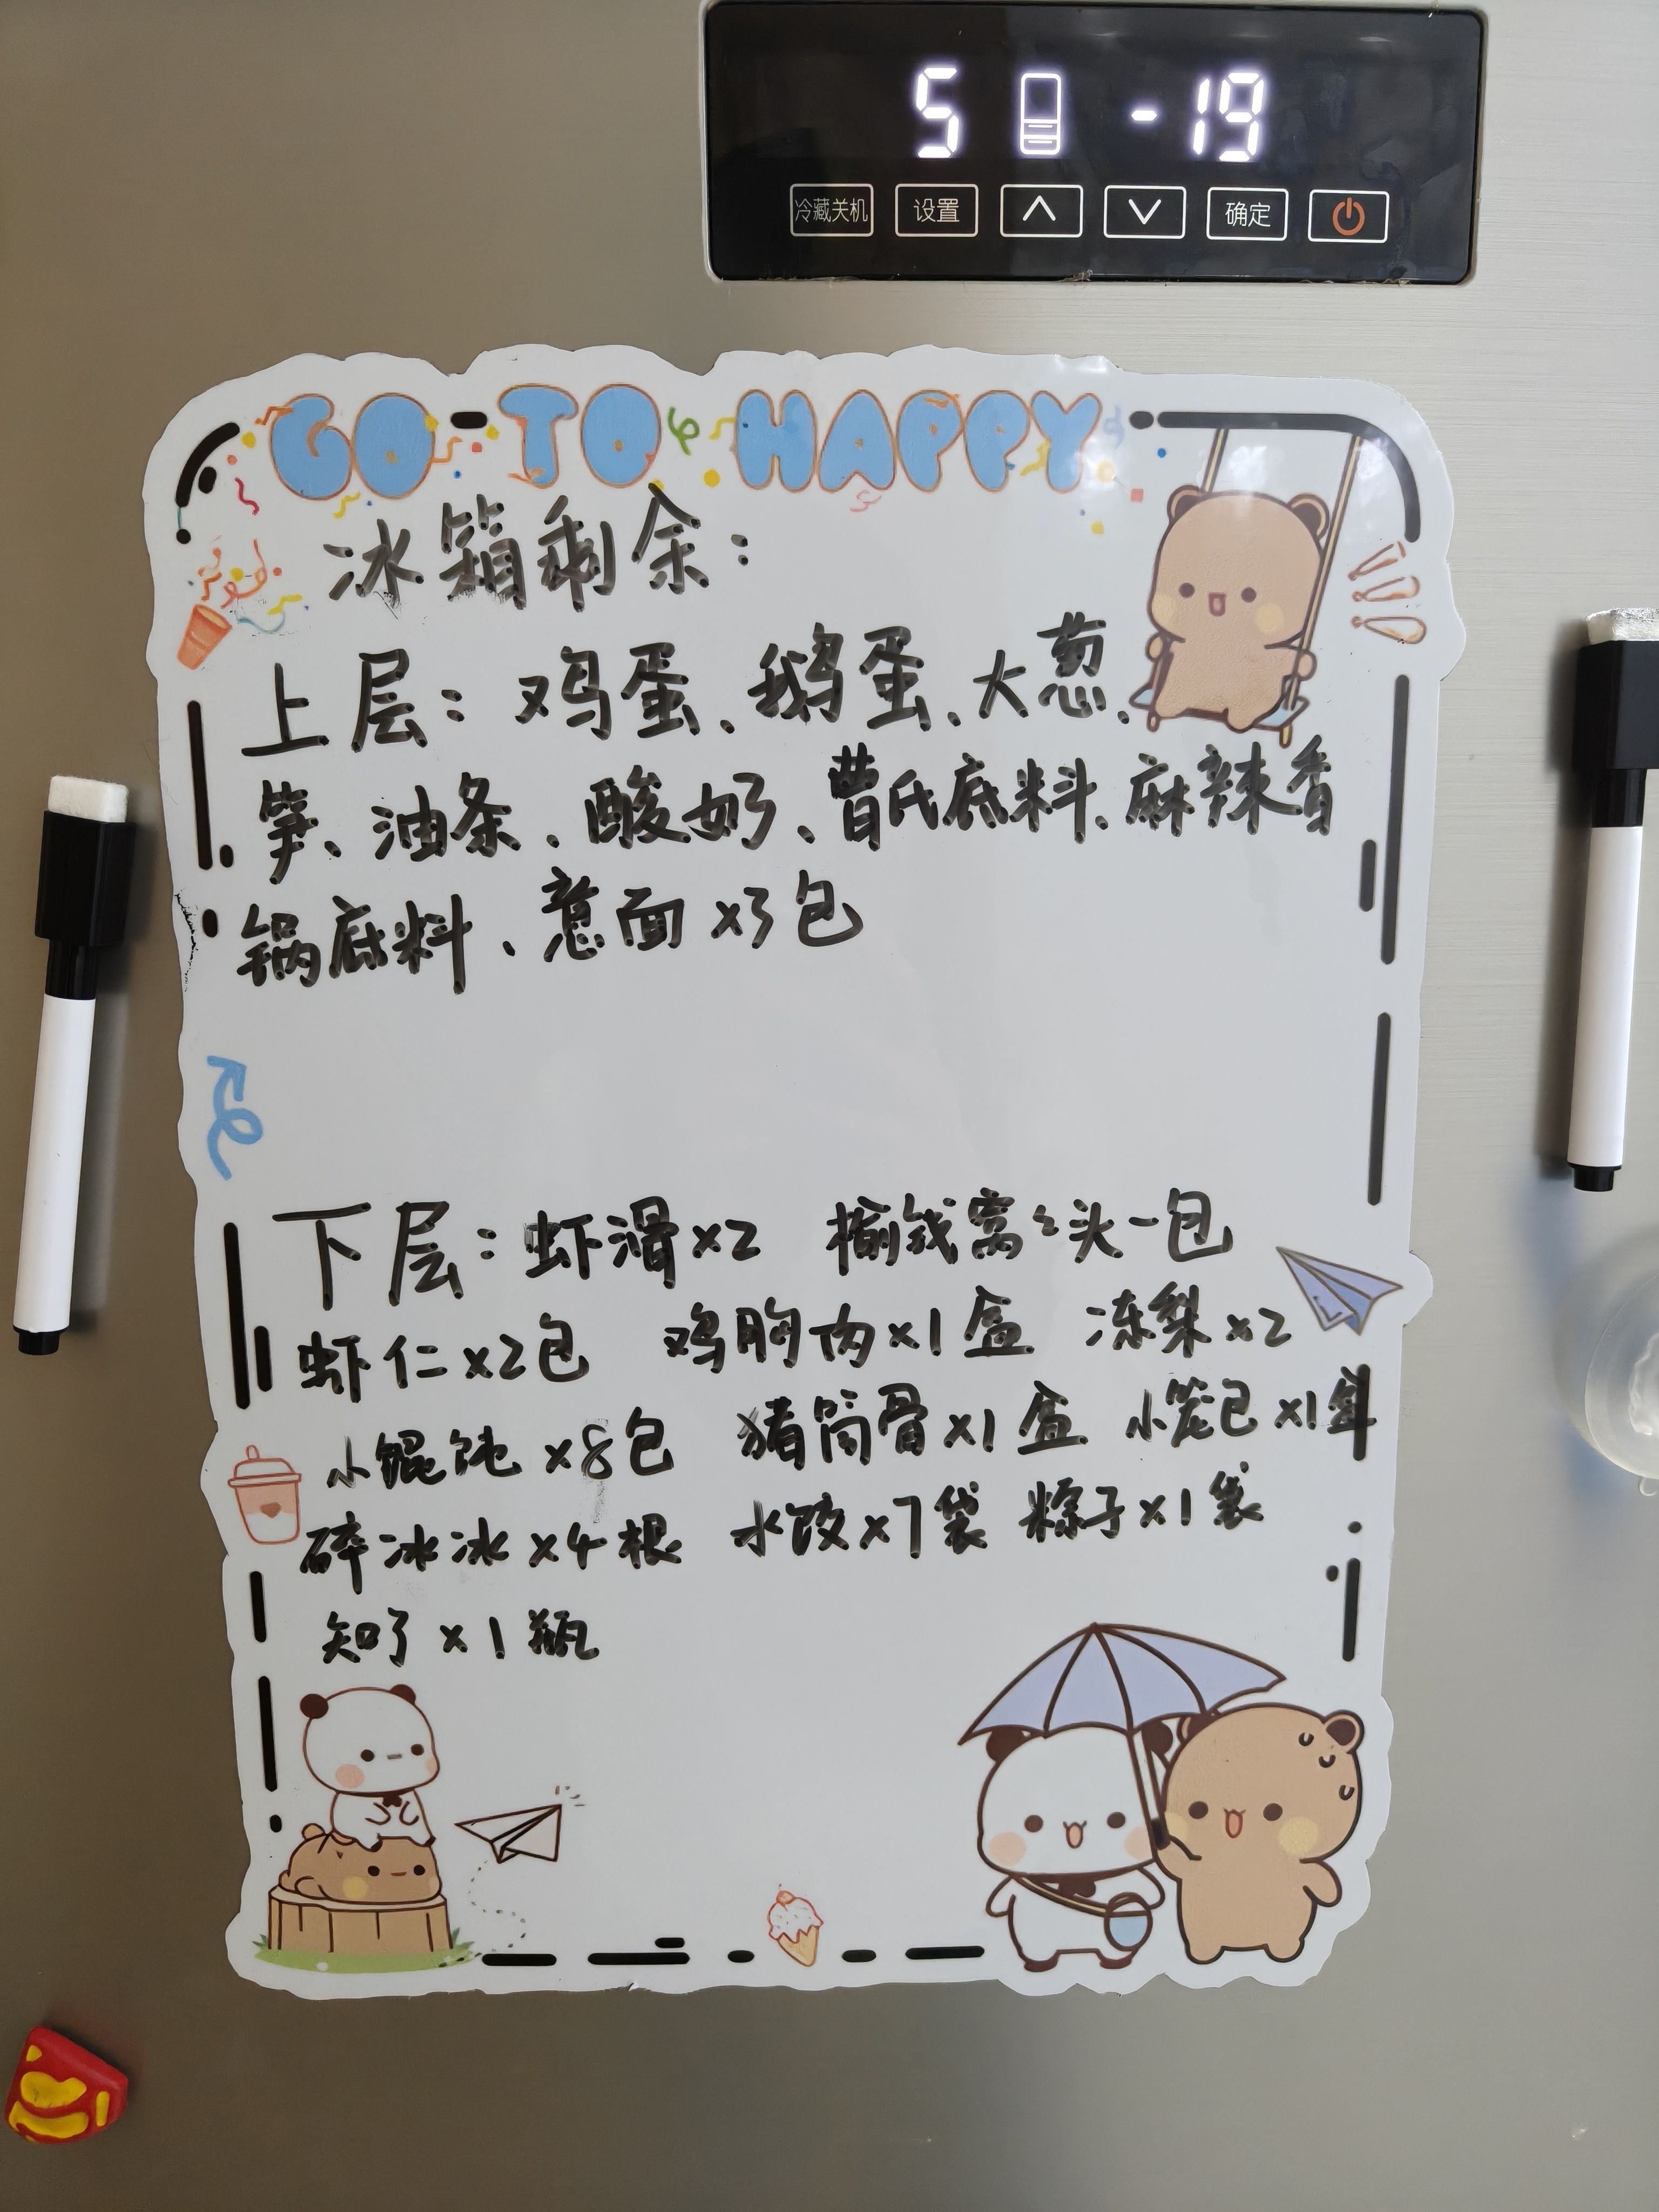 5 -19
冷藏关机 设置 确定
GO TO HAPPY
冰箱剩余：
上层：鸡蛋、鹅蛋、大葱、
笋、油条、酸奶、曹氏底料、麻辣香
锅底料、意面x3包
下层：虾滑x2 榆钱窝窝头一包
虾仁x2包 鸡胸肉x1盒 冻梨x2
小馄饨x8包 猪筒骨x1盒 小笼包x1
碎冰冰x4根 水饺x7袋 粽子x1袋
知了x1瓶